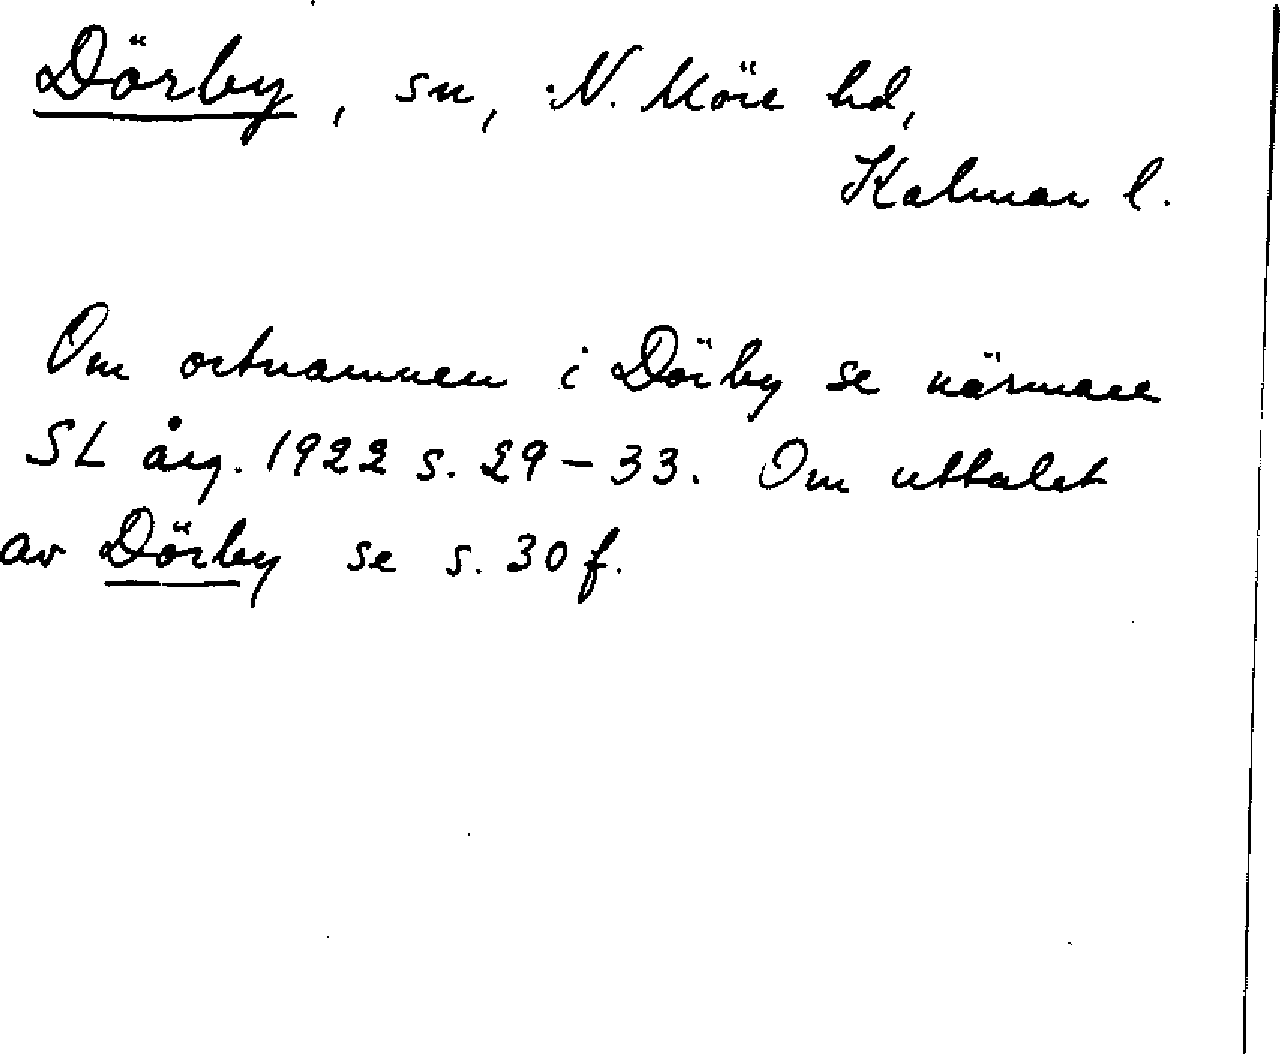 Dörby, sn, N. Möre hd,
Kalmar l.
Om ortnamnen i Dörby se närmare
SL årg. 1922 s. 29-33. Om uttalet
av Dörby se s. 30 f.